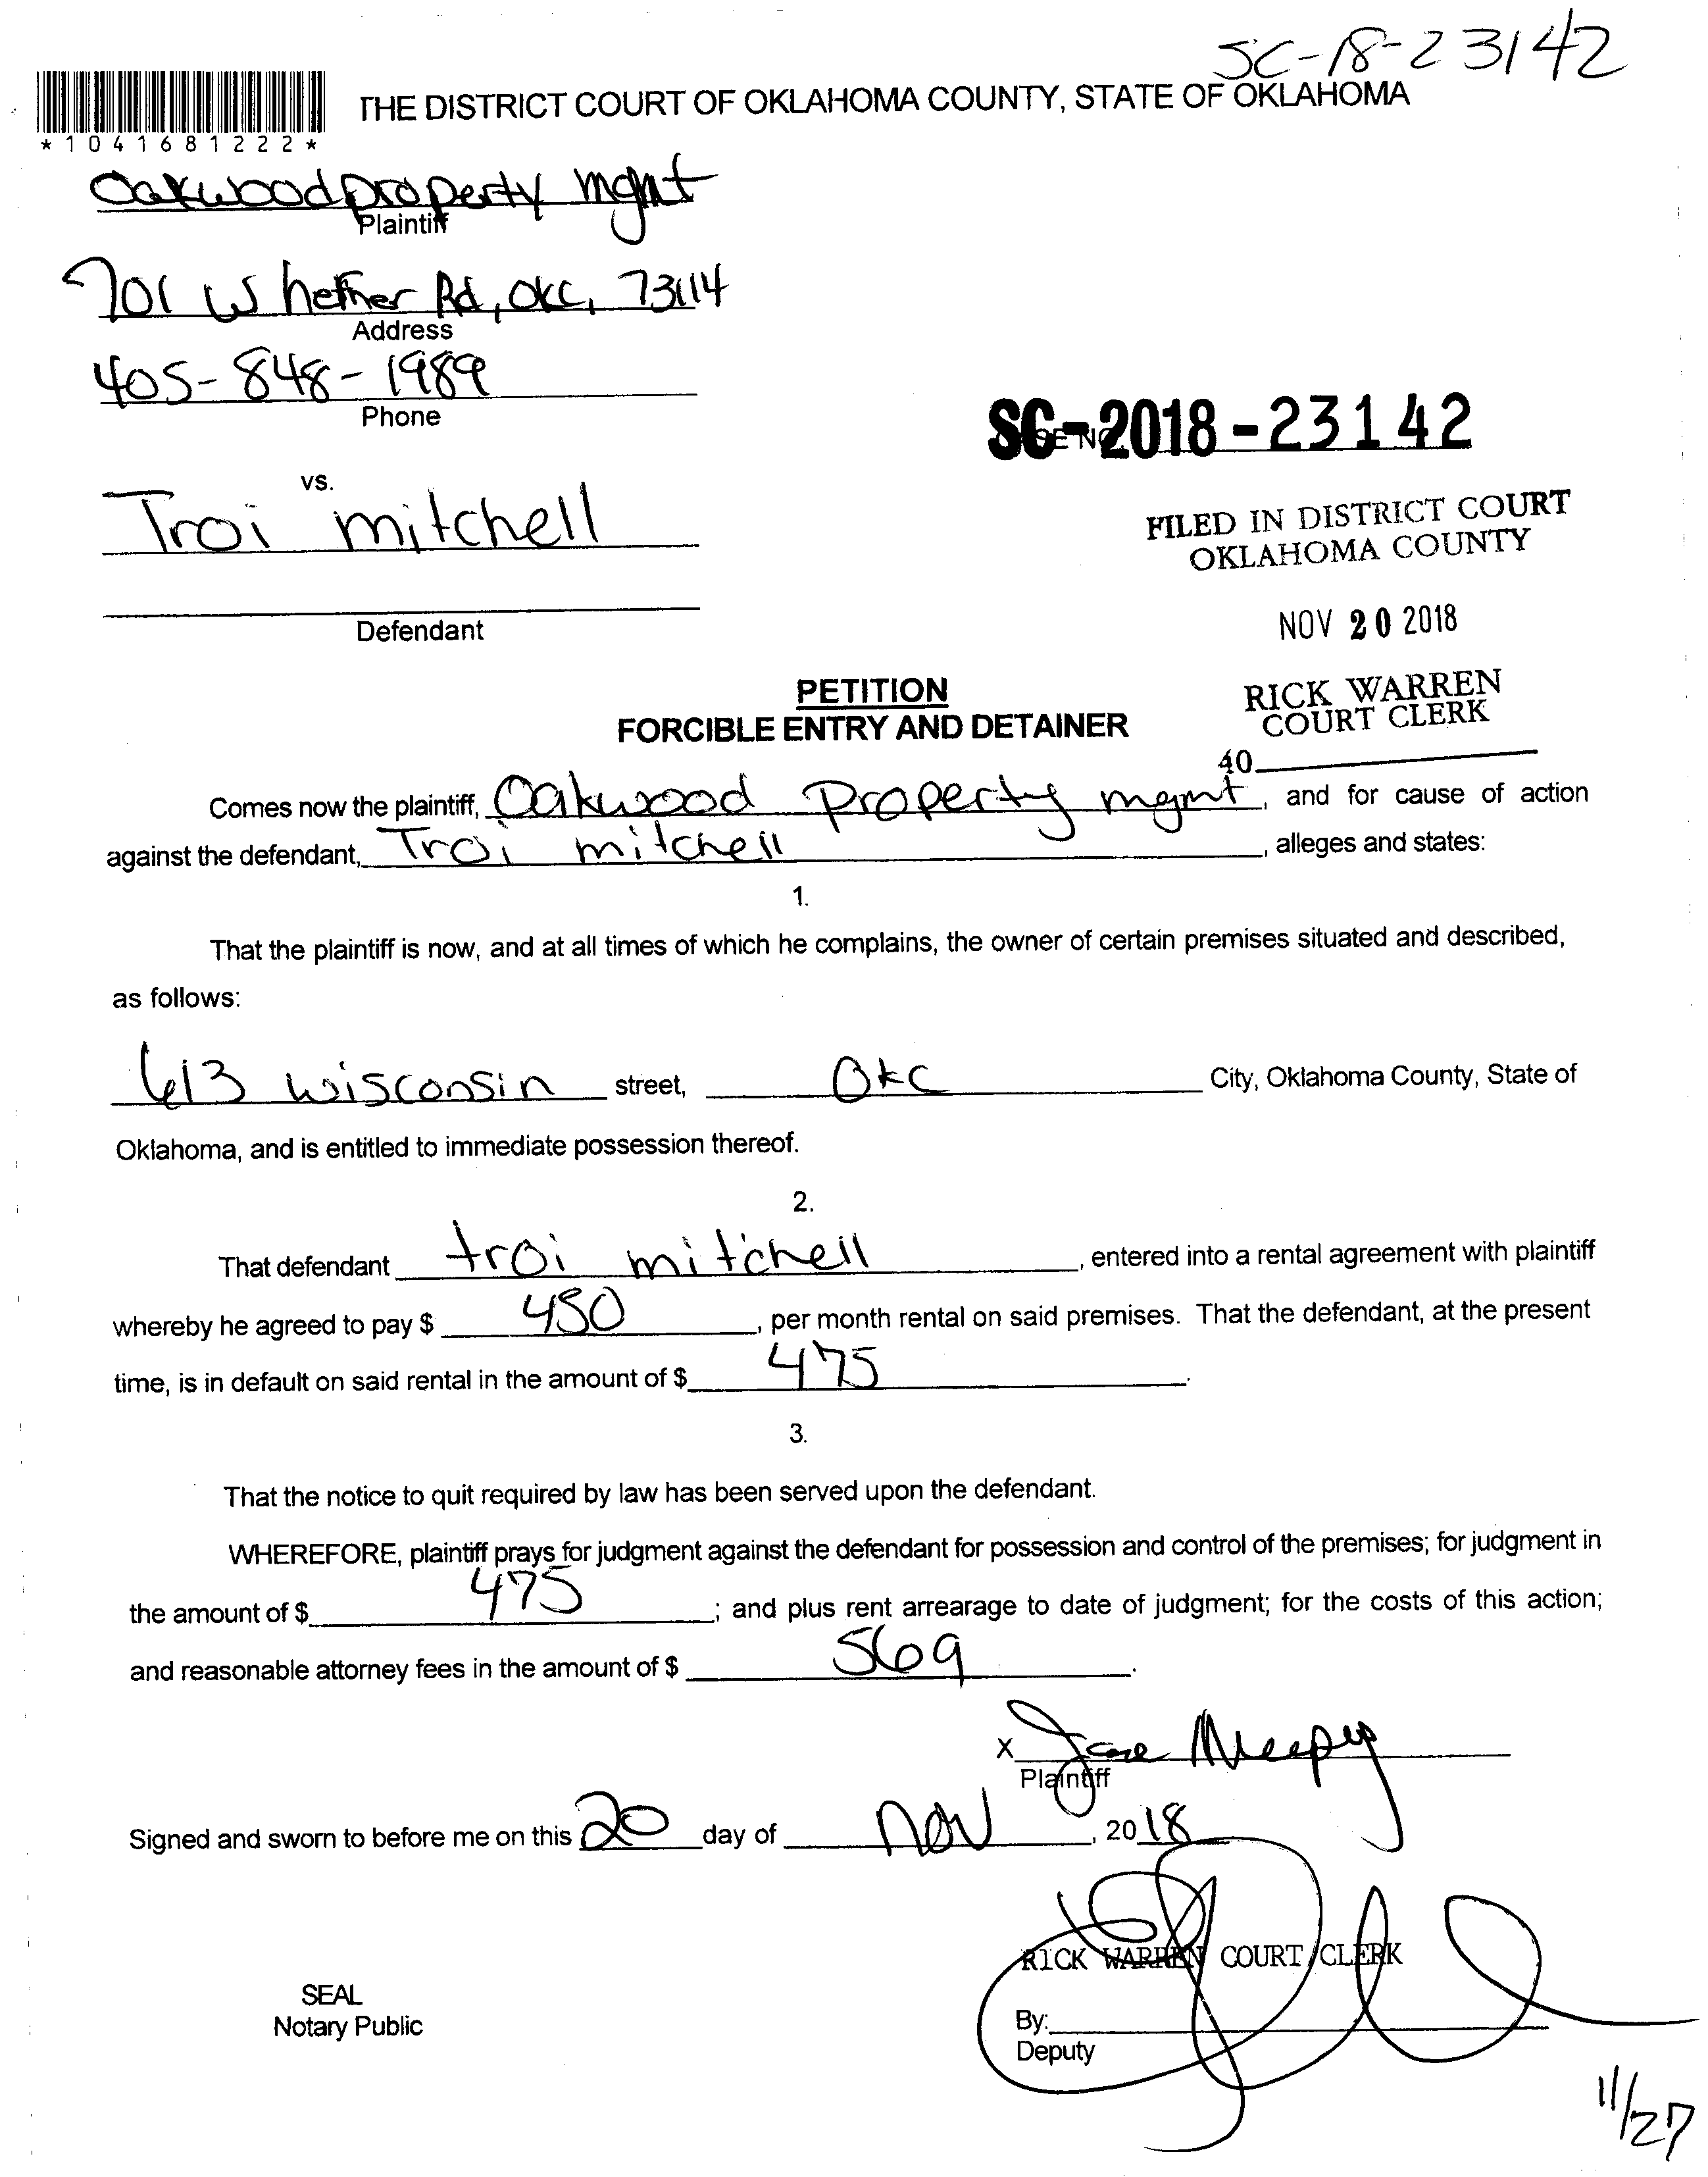 SC-18-23142
THE DISTRICT COURT OF OKLAHOMA COUNTY, STATE OF OKLAHOMA
*1041681222*
Oakwood property mgmt
Plaintiff
701 W hefner Rd, OKC, 73114
Address
405-848-1989
Phone
SC-2018-23142
vs.
Troi mitchell
FILED IN DISTRICT COURT
OKLAHOMA COUNTY
Defendant
NOV 20 2018
PETITION
FORCIBLE ENTRY AND DETAINER
RICK WARREN
COURT CLERK
40
Comes now the plaintiff, Oakwood property mgmt, and for cause of action
against the defendant, Troi mitchell, alleges and states:
1.
That the plaintiff is now, and at all times of which he complains, the owner of certain premises situated and described,
as follows:
613 wisconsin street, OKC City, Oklahoma County, State of
Oklahoma, and is entitled to immediate possession thereof.
2.
That defendant troi mitchell, entered into a rental agreement with plaintiff
whereby he agreed to pay $ 450, per month rental on said premises. That the defendant, at the present
time, is in default on said rental in the amount of $ 475.
3.
That the notice to quit required by law has been served upon the defendant.
WHEREFORE, plaintiff prays for judgment against the defendant for possession and control of the premises; for judgment in
the amount of $ 475; and plus rent arrearage to date of judgment; for the costs of this action;
and reasonable attorney fees in the amount of $ 569.
X
Plaintiff
Signed and sworn to before me on this 20 day of nov, 2018
RICK WARREN COURT CLERK
SEAL
Notary Public
By:
Deputy
11/27